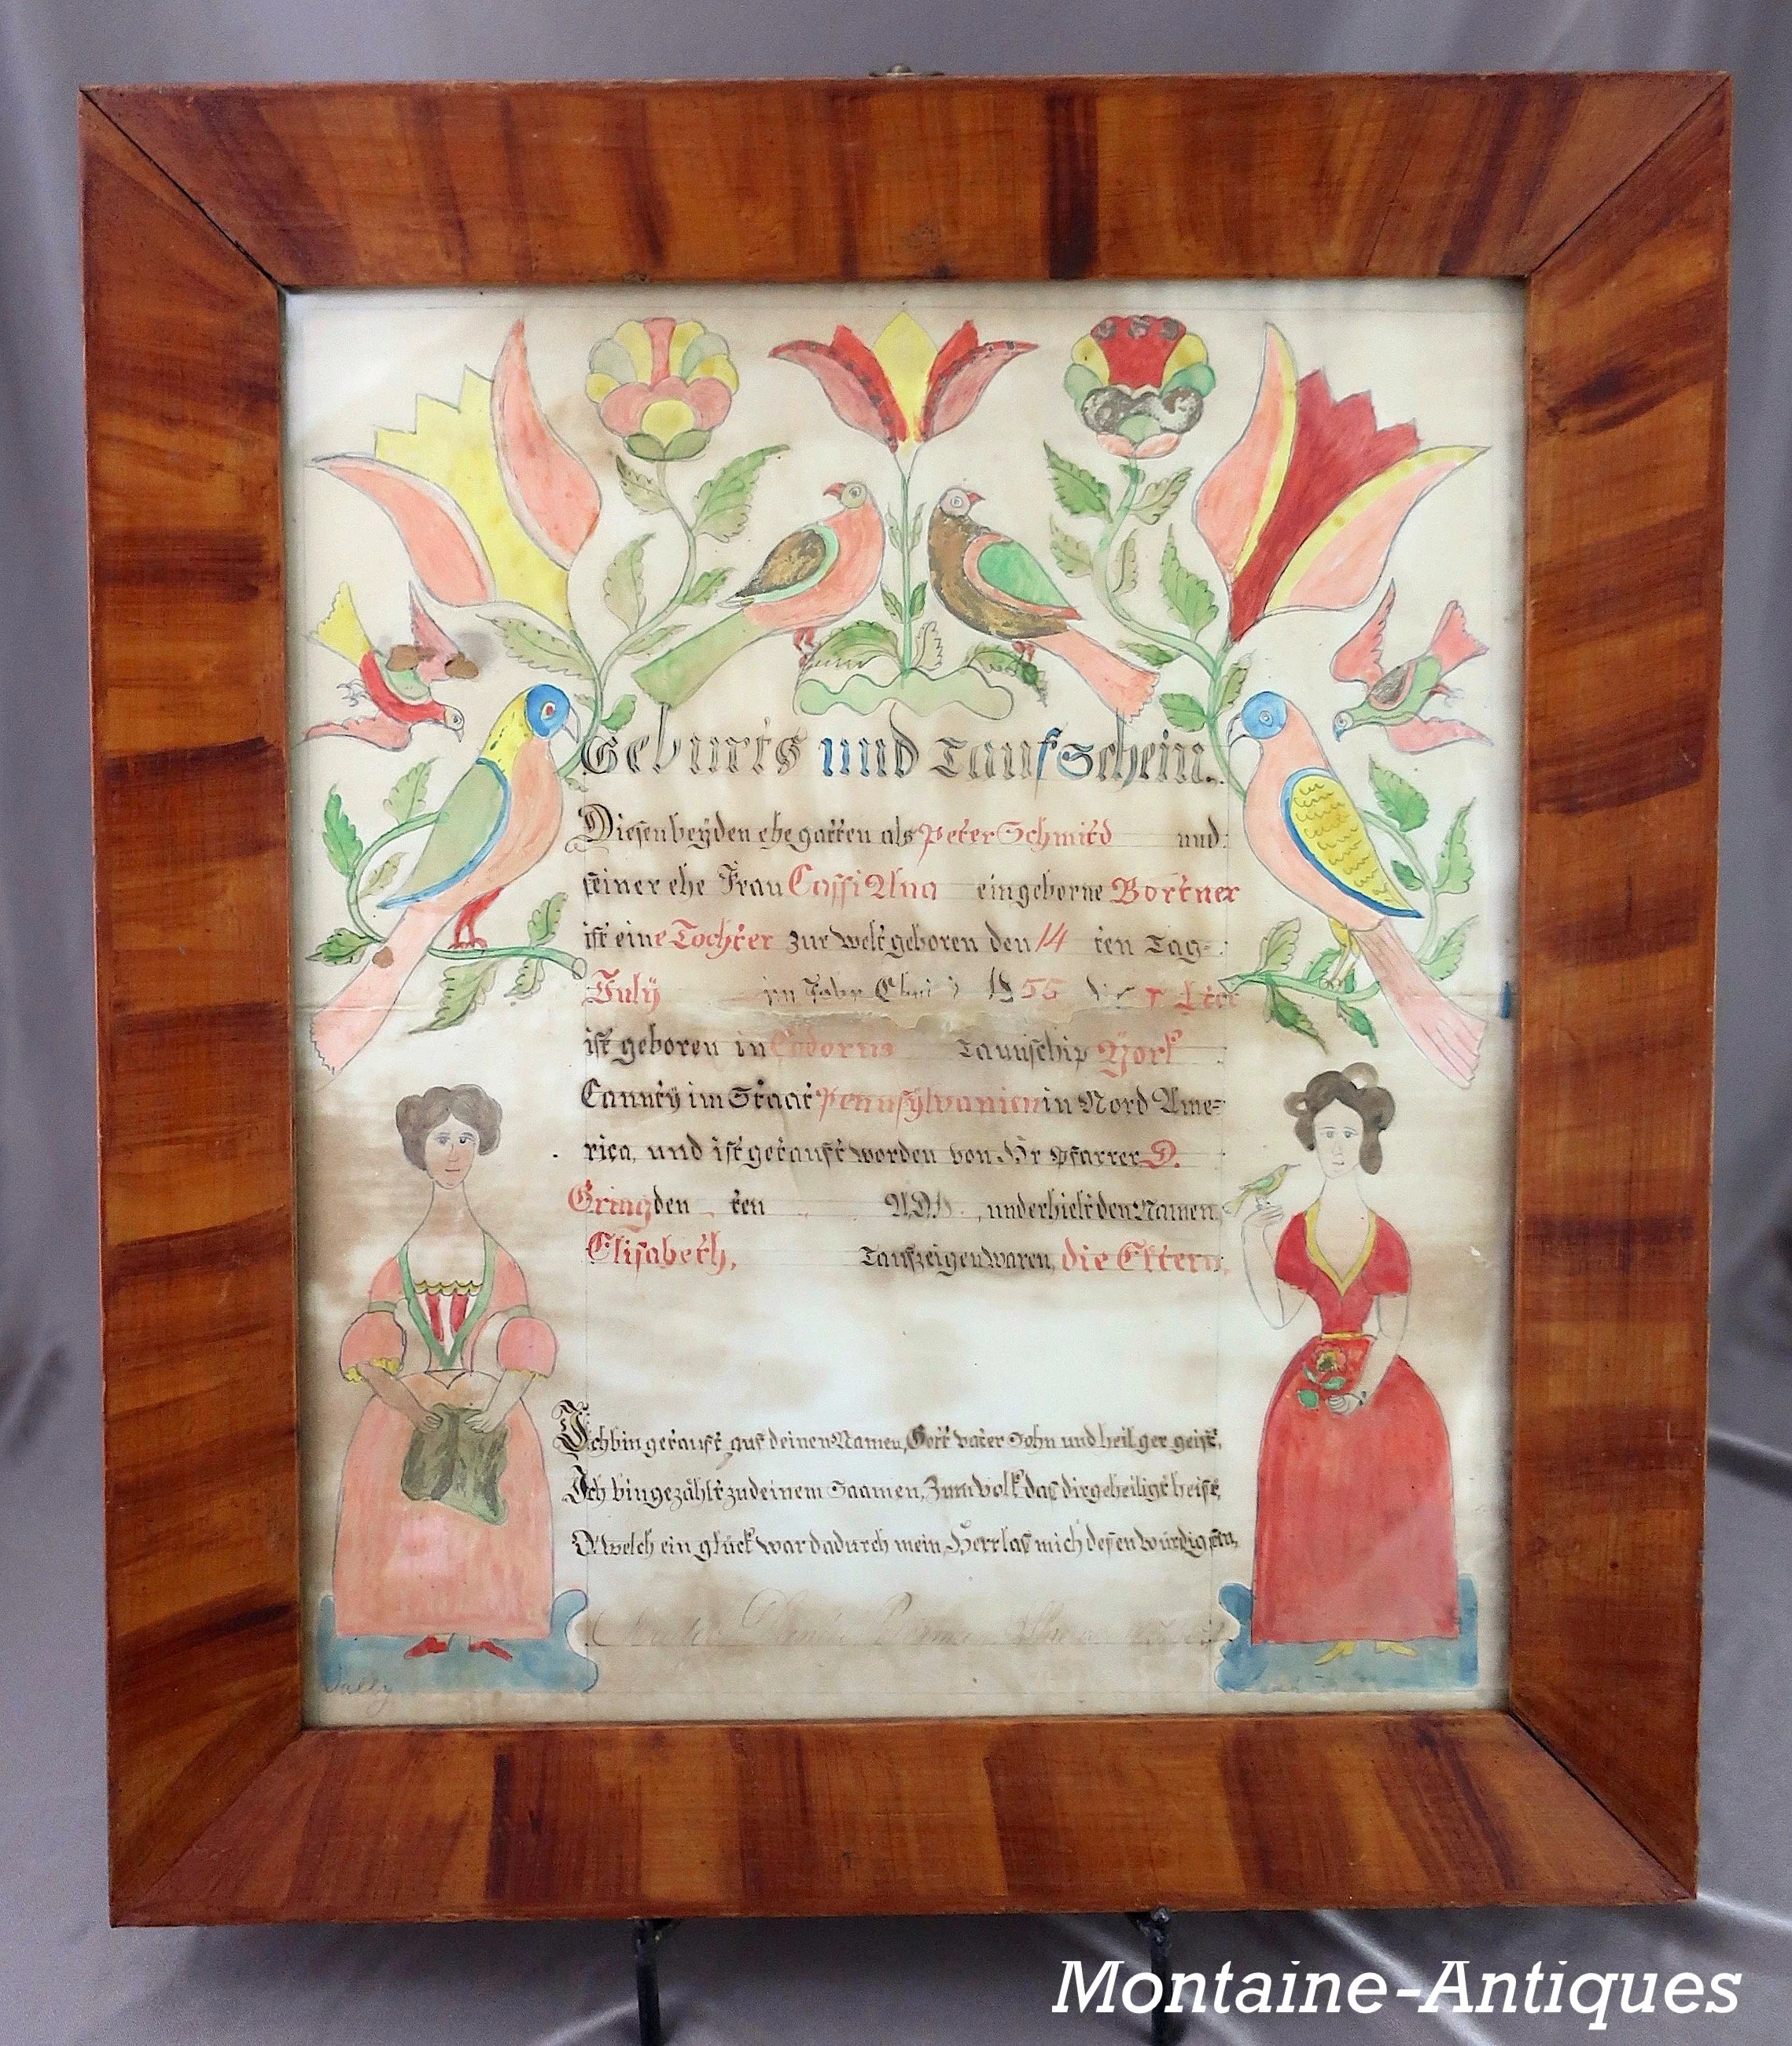 Geburts und Taufschein.
Diesen beyden ehegatten als Peter Schmitd und
seiner ehe Frau Cassi Ana eingeborne Bortner
ist eine Tochter zur welt geboren den 14 ten Tag
July im Jahr 1855
ist geboren in Codorus Taunschip York
Caunty im Staat Pennsylvanien in Nord Ame=
rica, und ist getauft worden von Hr Pfarrer D.
Gring den ten AD , und erhielt den Namen
Elisabeth, Taufzeigen waren, die Eltern
Ich bin getauft, auf deinen Namen, Gott vater Sohn und heilger geist,
Ich bin gezählt zu deinem Saamen, Zum volk das dir geheiligt heist,
O welch ein glück war dadurch mein, Herr las mich desen würdig sein,
Sally
Montaine-Antiques